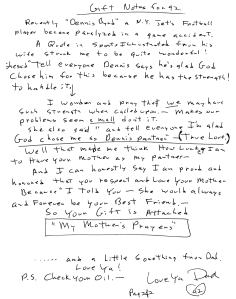 Gift Notes for 92
Recently "Dennis Byrd" a N.Y. Jet's Football
player became paralyzed in a game accident.
A Quote in Sports Illustrated from his
wife struck me to be quite wonderful!
She said "I tell everyone Dennis says he's glad God
Chose him for this because he has the strength!
to handle it."
I wonder and pray that we may have
such strength when called upon. – Makes our
problems seem small don't it.
She also said "I ask tell everyone I'm glad
God chose me as Dennis's partner – (True Love)
Well that made me think How Lucky I am
to Have your mother as my partner –
And I can honestly say I am proud and
honored that you respect and Love your Mother
Because "I Told You – She would always
and Forever be your Best Friend. –
So Your Gift is Attached
"My Mother's Prayers"
...... and a Little Something from Dad.
Love Ya!
P.S. Check Your Oil. –
Love Ya Dad
Page 2